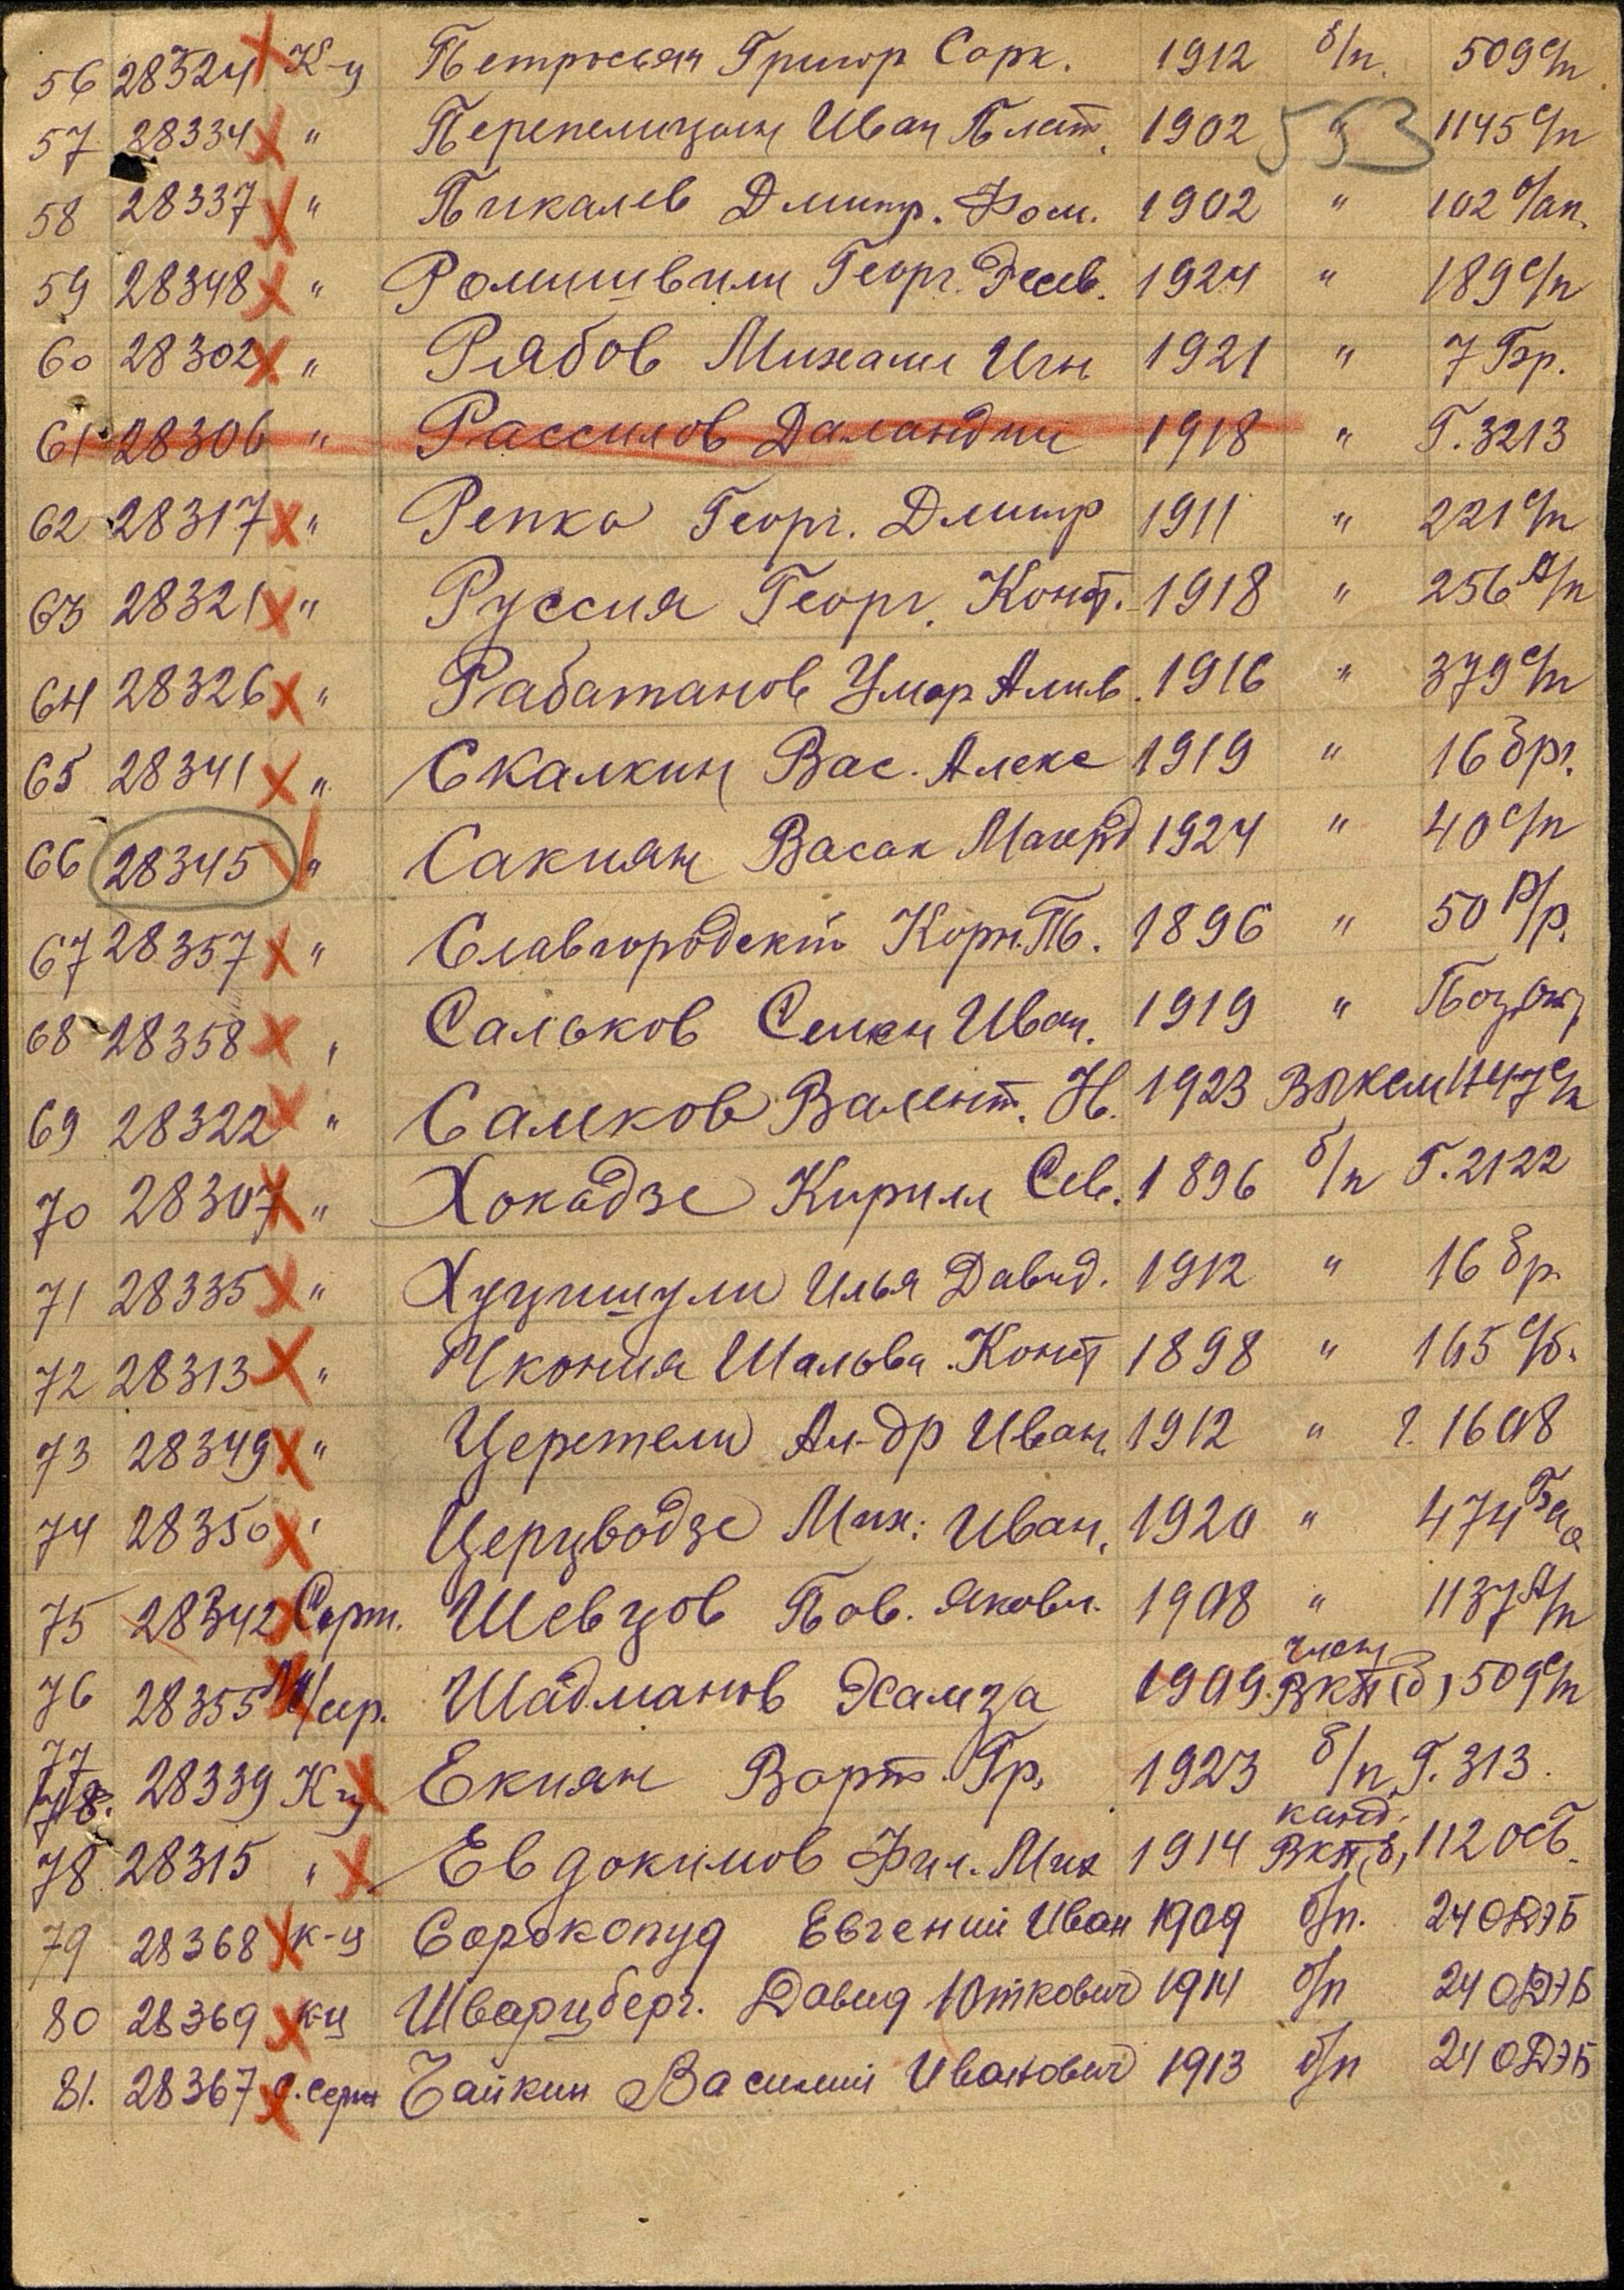 56 28324 К-ц Петросьян Григор Сарк. 1912 б/п. 509 с/п
553
57 28334 " Перепелицын Иван Плат. 1902 " 1145 с/п
58 28337 " Пикалев Дмитр. Фом. 1902 " 102 о/ап.
59 28348 " Ромишвили Георг. 1924 " 189 с/п
60 28302 " Рябов Михаил Игн 1921 " 7 Бр.
61 28306 " Рассулов Даландин 1918 " Г. 3213
62 28317 " Репка Георг. Дмитр 1911 " 221 с/п
63 28321 " Руссия Георг. Конст. 1918 " 256 А/п
64 28326 " Рабатанов Умар Алив. 1916 " 379 с/п
65 28341 " Скалкин Вас. Алекс 1919 " 16 бр.
66 28345 " Сакиян Васак 1924 " 40 с/п
67 28357 " Славгородский Корн. Пв. 1896 " 50 Р/р.
68 28358 " Сальков Семен Иван. 1919 "
69 28322 " Самков Валент. Н. 1923 ВЛКСМ 1147 с/п
70 28307 " Хокадзе Кирилл Сев. 1896 б/п Г. 2122
71 28335 " Хуцишули Илья Давид. 1912 " 16 бр.
72 28313 " Чкония Шалва Конст 1898 " 165 с/б.
73 28349 " Церетели Ал-др Иван. 1912 " г. 1608
74 28350 " Церцвадзе Мих. Иван. 1920 " 474
75 28342 Серт. Шевцов Пав. Яковл. 1908 " 1137 А/п
76 28355 Шадманов Хамза 1909 член ВКП(б) 509 с/п
77 28339 К-ц Екиян Варт. Гр. 1923 б/п Г. 313.
78 28315 " Евдокимов Фил. Мих 1914 канд. ВКП(б) 112 ОСБ.
79 28368 к-ц Сорокопуд Евгений Иван 1909 б/п. 24 ОДЭБ
80 28369 к-ц Шварцберг. Давид Юткович 1914 б/п 24 ОДЭБ
81. 28367 Чайкин Василий Иванович 1913 б/п 24 ОДЭБ